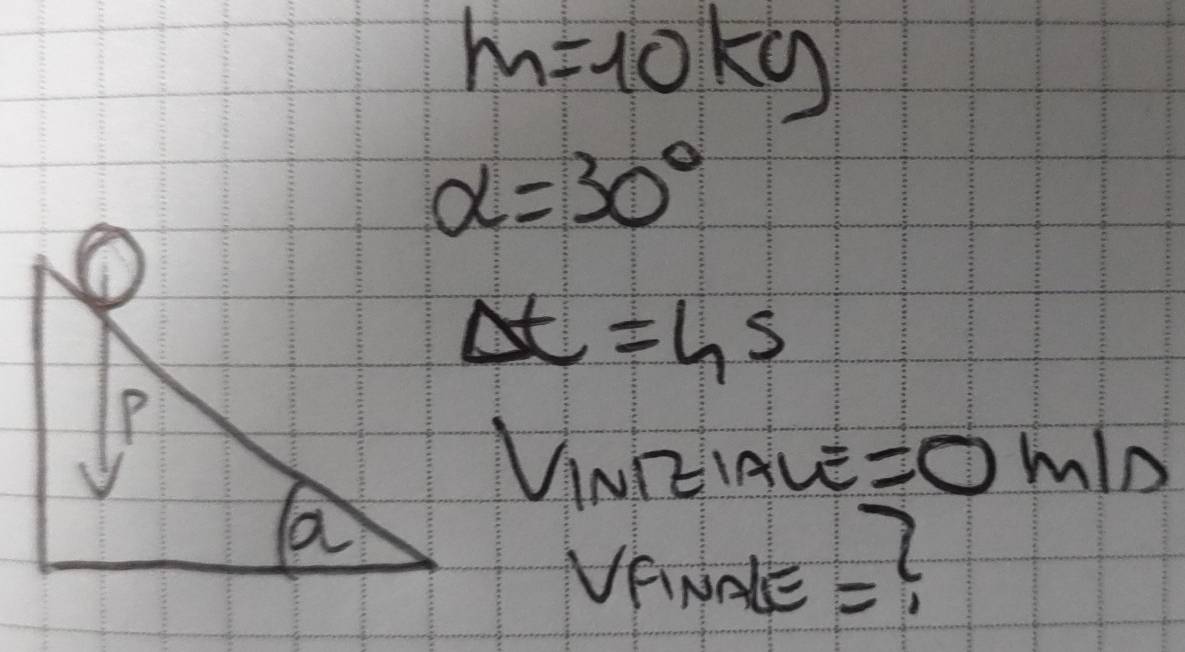 m=10 kg
α=30°
Δt=4 s
VINIZIALE=0 m/s
VFINALE=?
P
α